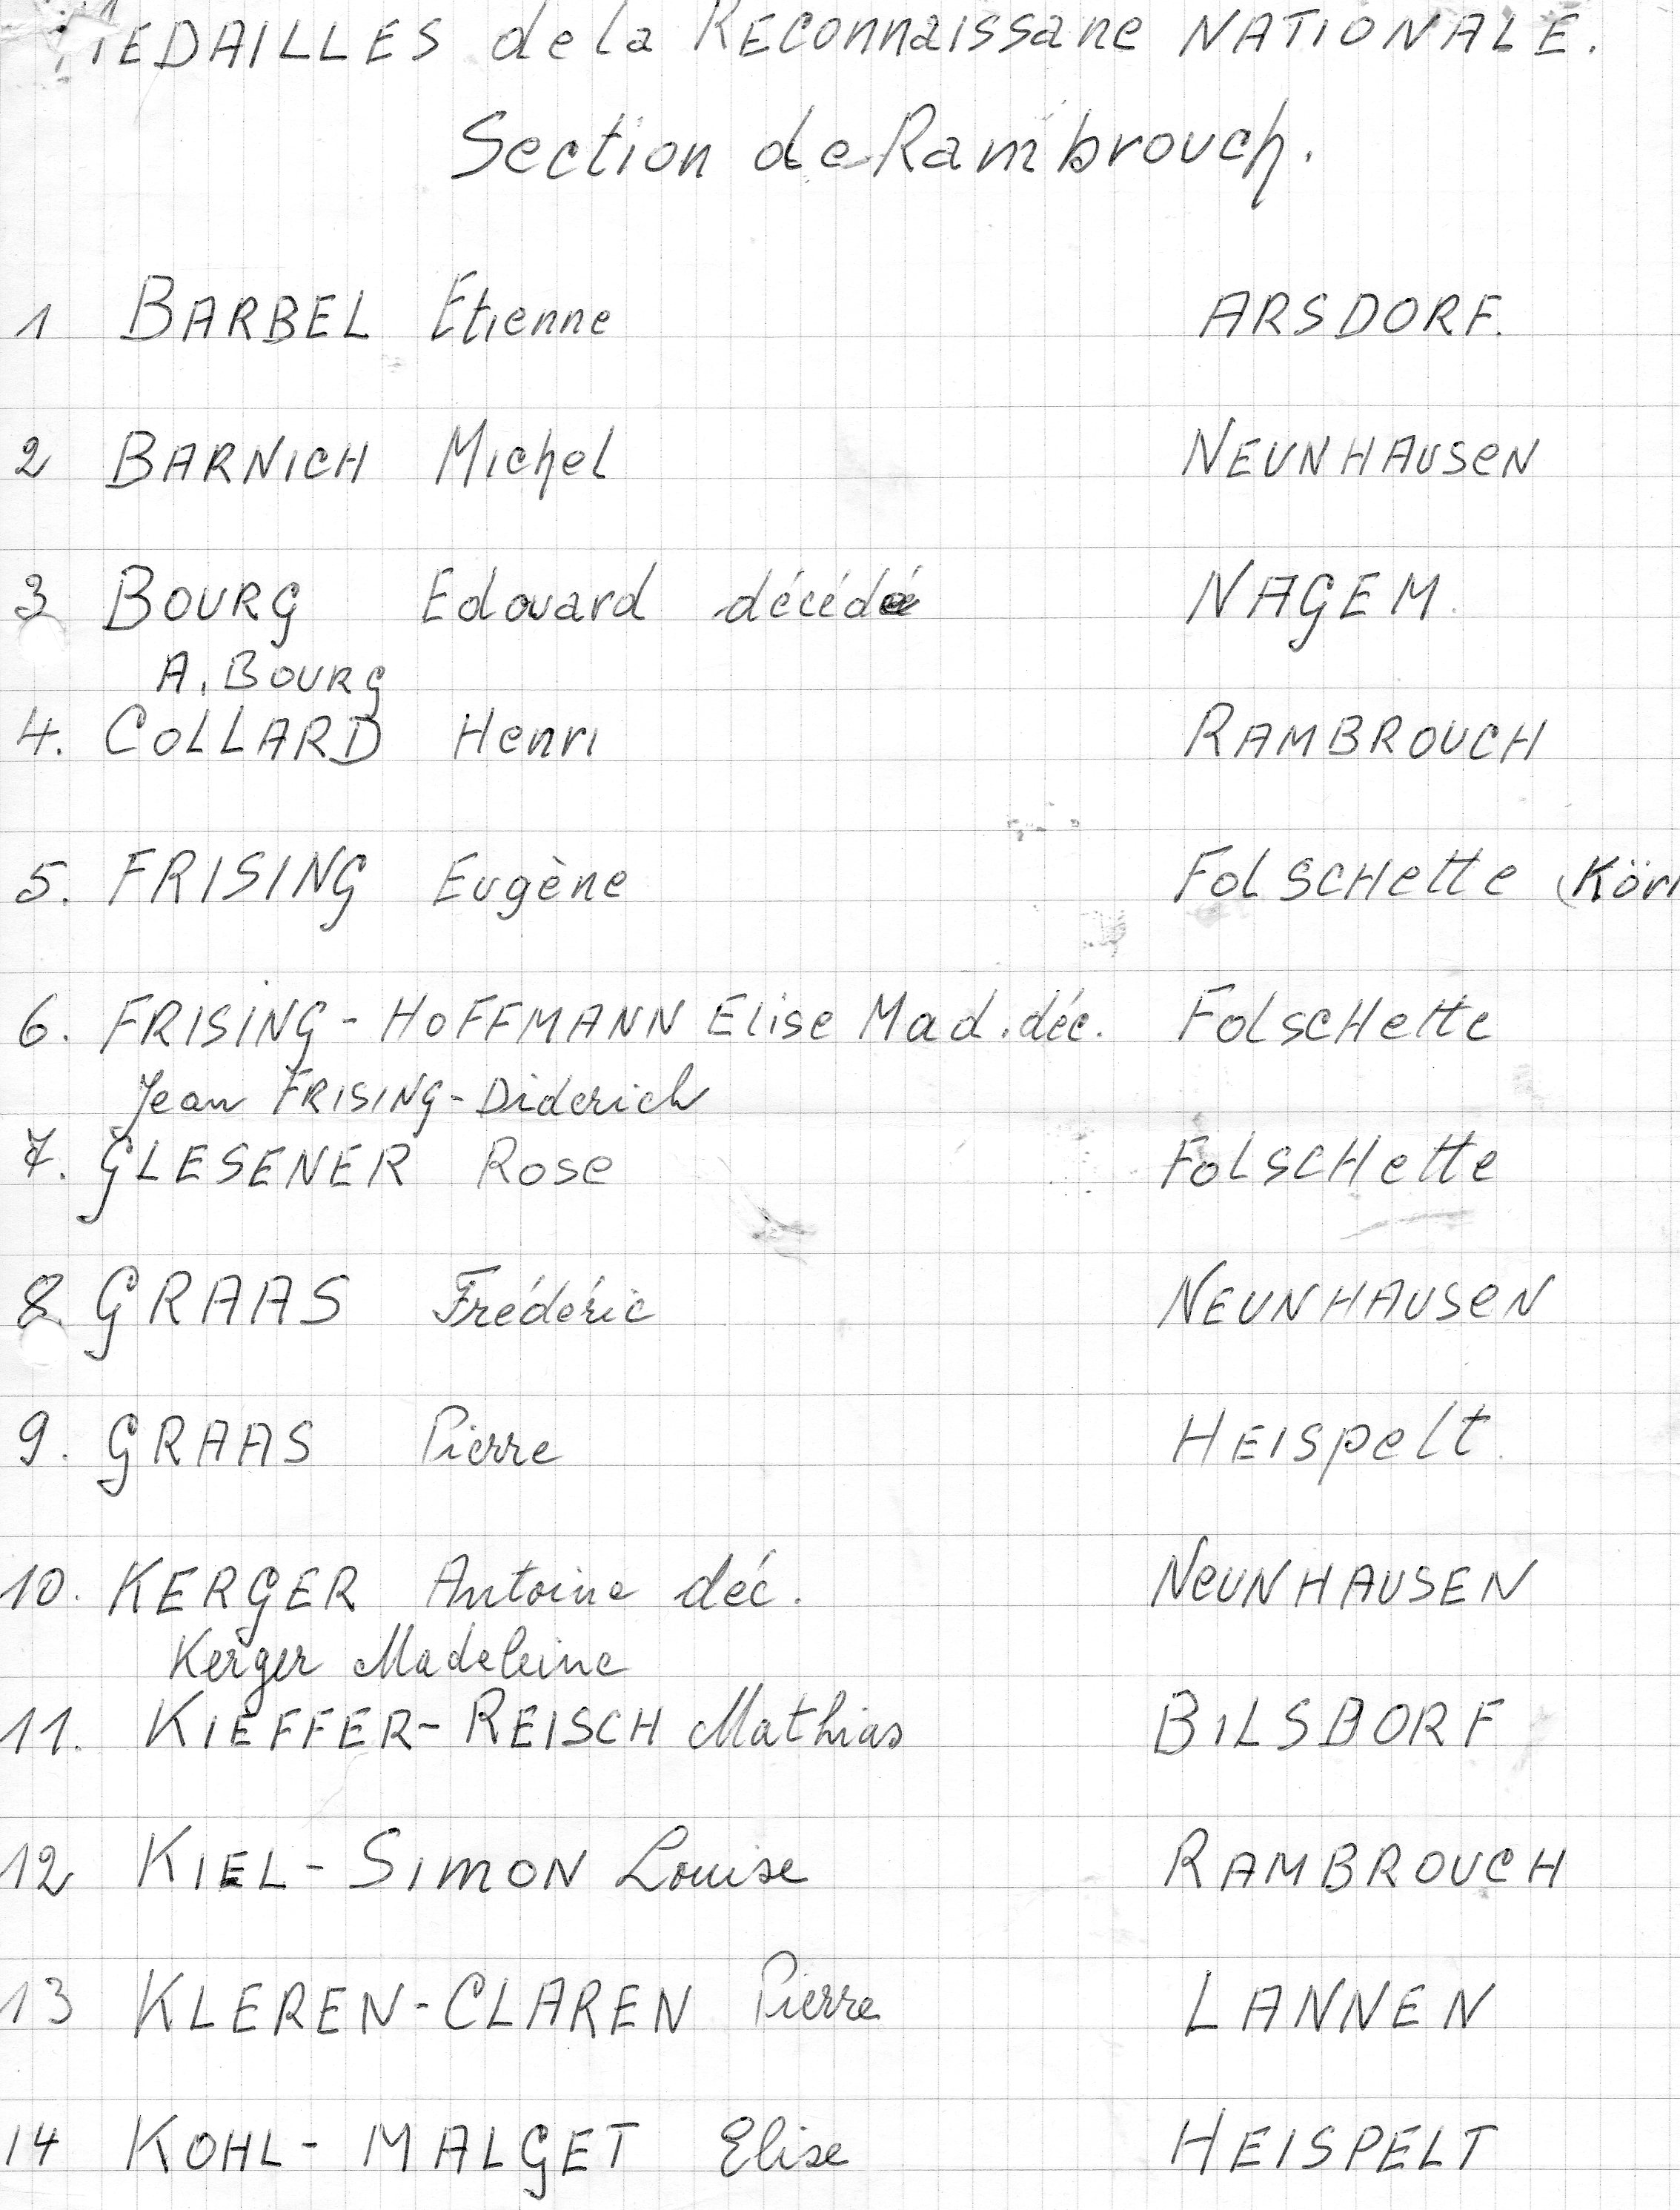 MEDAILLES de la RECONNAISSANE NATIONALE.
Section de Rambrouch.
1 BARBEL Etienne ARSDORF.
2 BARNICH Michel NEUNHAUSEN
3 BOURG Edouard décédé NAGEM.
A. BOURG
4. COLLARD Henri RAMBROUCH
5. FRISING Eugène FOLSCHette (Kör
6. FRISING-HOFFMANN Elise Mad. déc. FOLSCHette
Jean FRISING-Diderich
7. GLESENER Rose FOLSCHette
8. GRAAS Frédéric NEUNHAUSEN
9. GRAAS Pierre HEISpelt.
10. KERGER Antoine déc. NEUNHAUSEN
Kerger Madeleine
11. KIEFFER-REISCH Mathias BILSDORF
12 KIEL-SIMON Louise RAMBROUCH
13 KLEREN-CLAREN Pierre LANNEN
14 KOHL-MALGET Elise HEISPELT